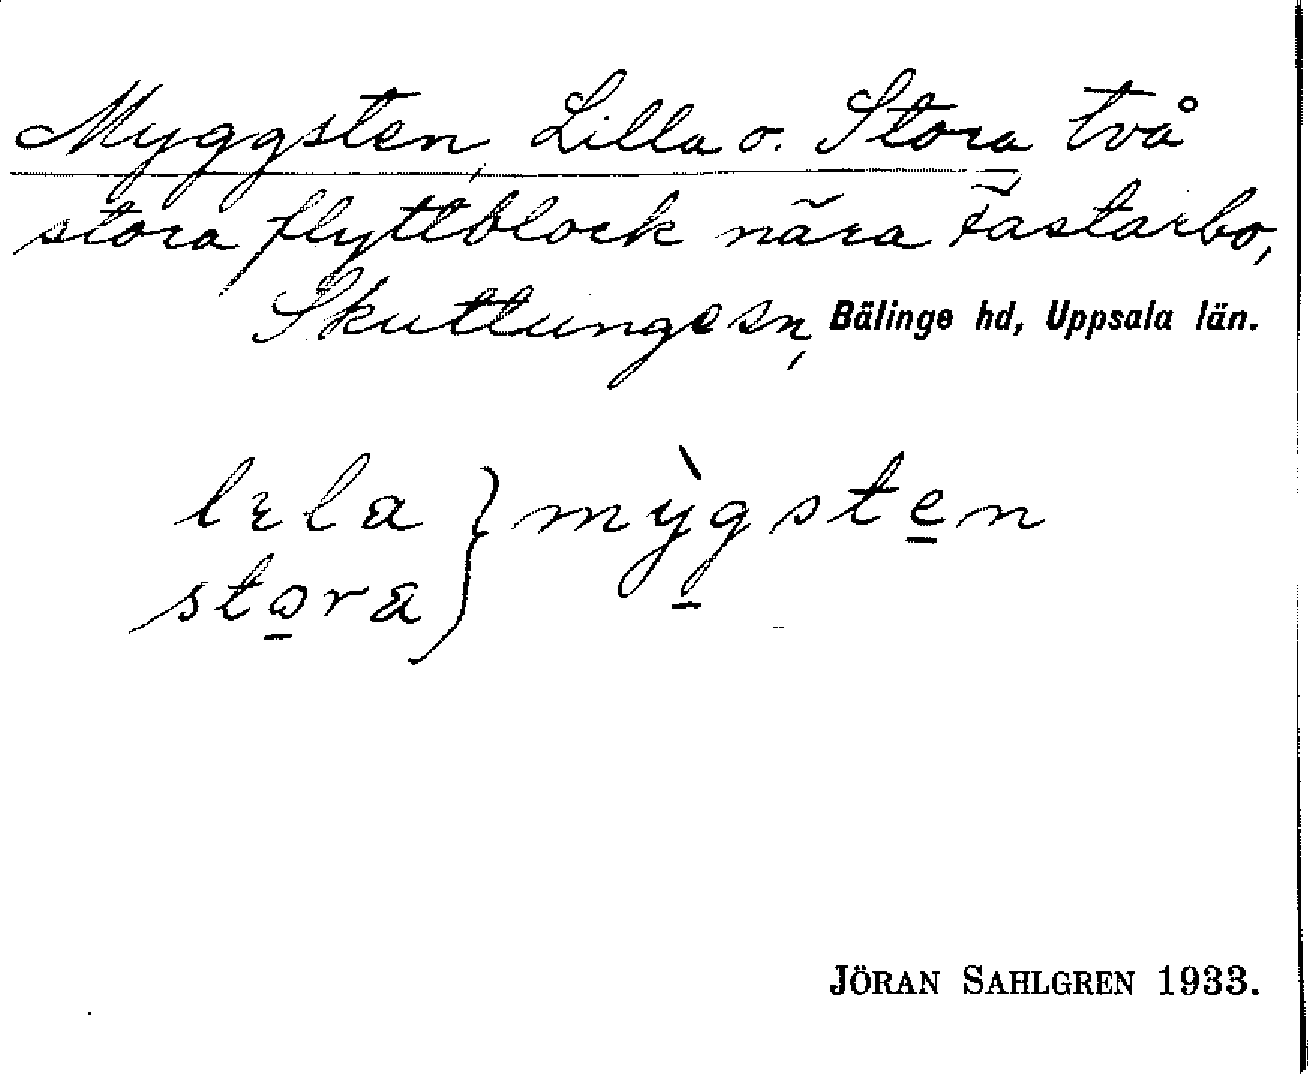 Myggsten, Lilla o. Stora, två
stora flyttblock nära Fastarbo,
Skuttunge sn, Bälinge hd, Uppsala län.
lɩla } mỳgsten
stora
JÖRAN SAHLGREN 1933.